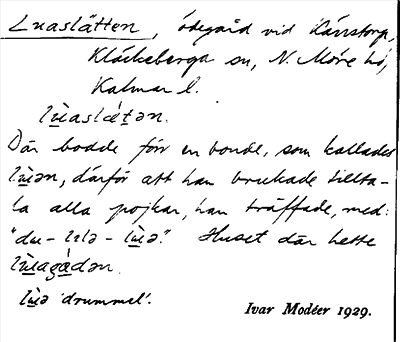 Luaslätten, ödegård vid Kärrstorp,
Kläckeberga sn, N. Möre hd,
Kalmar l.
lùaslǽtən.
Där bodde förr en bonde, som kallades
lùən, därför att han brukade tillta-
la alla pojkar, han träffade, med:
"du - lilə - lùə." Huset där hette
lùagådən.
lùə 'drummel'.
Ivar Modéer 1929.